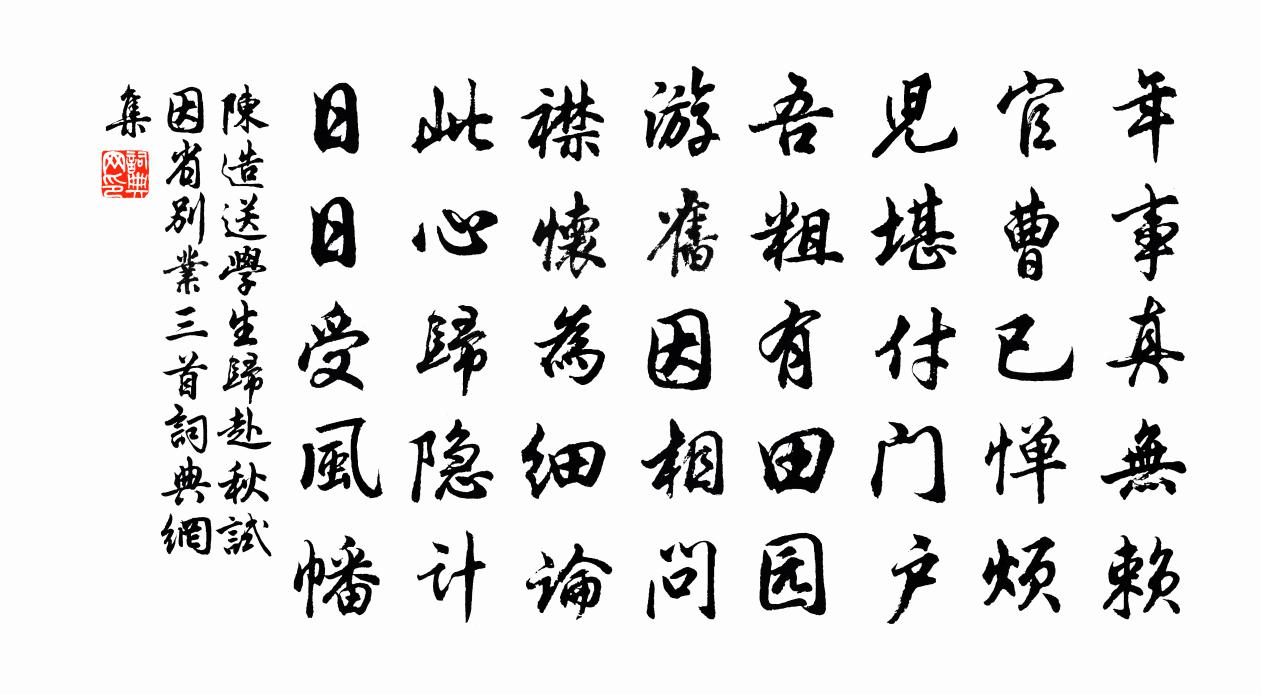 年事真無賴
官曹已惮煩
児堪付门户
吾粗有田园
游舊因相问
襟懷為细論
此心歸隐计
日日受風幡
陳造送學生歸赴秋試
因省別業三首詞典網
集
詞典网印